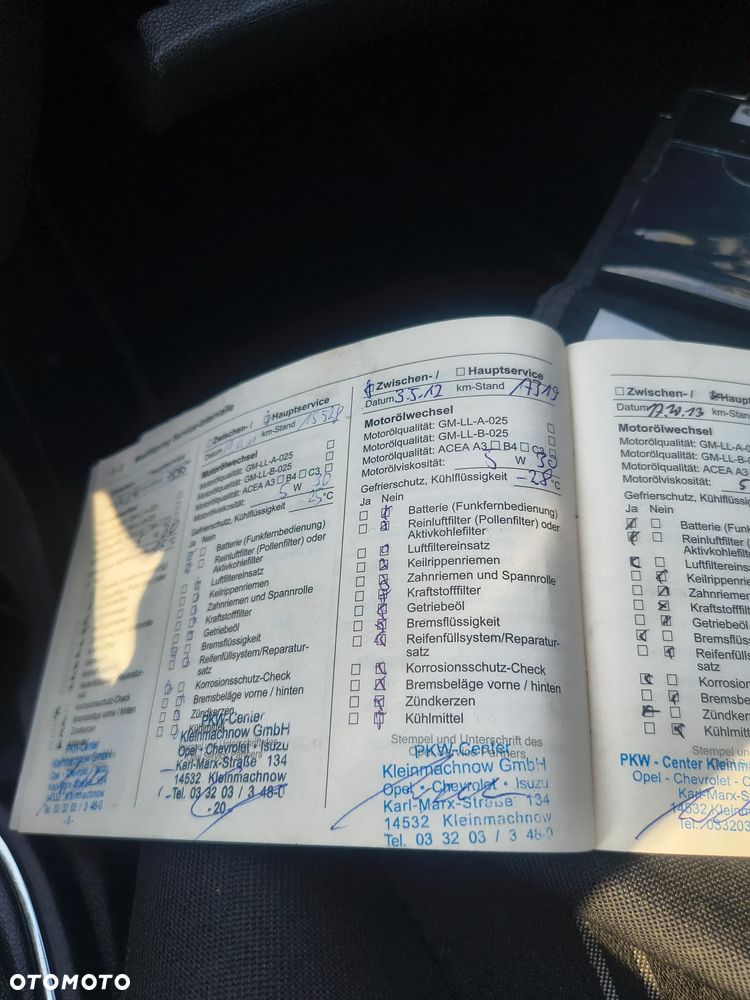 Bestätigung Service-Intervalle
Korrosionsschutz-Check
Bremsbeläge vorne / hinten
Zündkerzen
PKW-Center
Kleinmachnow GmbH
14532 Kleinmachnow
Tel. 03 32 03 / 3 48-0
- 8 -
Zwischen- / Hauptservice
Datum km-Stand
Motorölwechsel
Motorölqualität: GM-LL-A-025
Motorölqualität: GM-LL-B-025
Motorölqualität: ACEA A3 B4 C3
Motorölviskosität: 5 W 30
Gefrierschutz, Kühlflüssigkeit -25 °C
Ja Nein
Batterie (Funkfernbedienung)
Reinluftfilter (Pollenfilter) oder
Aktivkohlefilter
Luftfiltereinsatz
Keilrippenriemen
Zahnriemen und Spannrolle
Kraftstofffilter
Getriebeöl
Bremsflüssigkeit
Reifenfüllsystem/Reparatur-
satz
Korrosionsschutz-Check
Bremsbeläge vorne / hinten
Zündkerzen
Kühlmittel
PKW-Center
Kleinmachnow GmbH
Opel · Chevrolet · Isuzu
Karl-Marx-Straße 134
14532 Kleinmachnow
Tel. 03 32 03 / 3 48-0
· 20 ·
Zwischen- / Hauptservice
Datum 3.5.12 km-Stand 17319
Motorölwechsel
Motorölqualität: GM-LL-A-025
Motorölqualität: GM-LL-B-025
Motorölqualität: ACEA A3 B4 C3
Motorölviskosität: 5 W 30
Gefrierschutz, Kühlflüssigkeit -28 °C
Ja Nein
Batterie (Funkfernbedienung)
Reinluftfilter (Pollenfilter) oder
Aktivkohlefilter
Luftfiltereinsatz
Keilrippenriemen
Zahnriemen und Spannrolle
Kraftstofffilter
Getriebeöl
Bremsflüssigkeit
Reifenfüllsystem/Reparatur-
satz
Korrosionsschutz-Check
Bremsbeläge vorne / hinten
Zündkerzen
Kühlmittel
Stempel und Unterschrift des
PKW-Center
Kleinmachnow GmbH
Opel · Chevrolet · Isuzu
Karl-Marx-Straße 134
14532 Kleinmachnow
Tel. 03 32 03 / 3 48-0
Zwischen- / Haupt
Datum km-Stand
Motorölwechsel
Motorölqualität: GM-LL-A
Motorölqualität: GM-LL-B
Motorölqualität: ACEA A3
Motorölviskosität: 5
Gefrierschutz, Kühlflüss
Ja Nein
Batterie (Funk
Reinluftfilter (
Aktivkohlefilte
Luftfiltereinsat
Keilrippenriem
Zahnriemen
Kraftstofffilt
Getriebeöl
Bremsflüss
Reifenfüll
satz
Korrosion
Bremsbe
Zündke
Kühlmitt
Stempel un
PKW - Center Klein
Opel - Chevrolet -
Karl-Marx-S
14532 Kleinm
Tel.: 03320
OTOMOTO